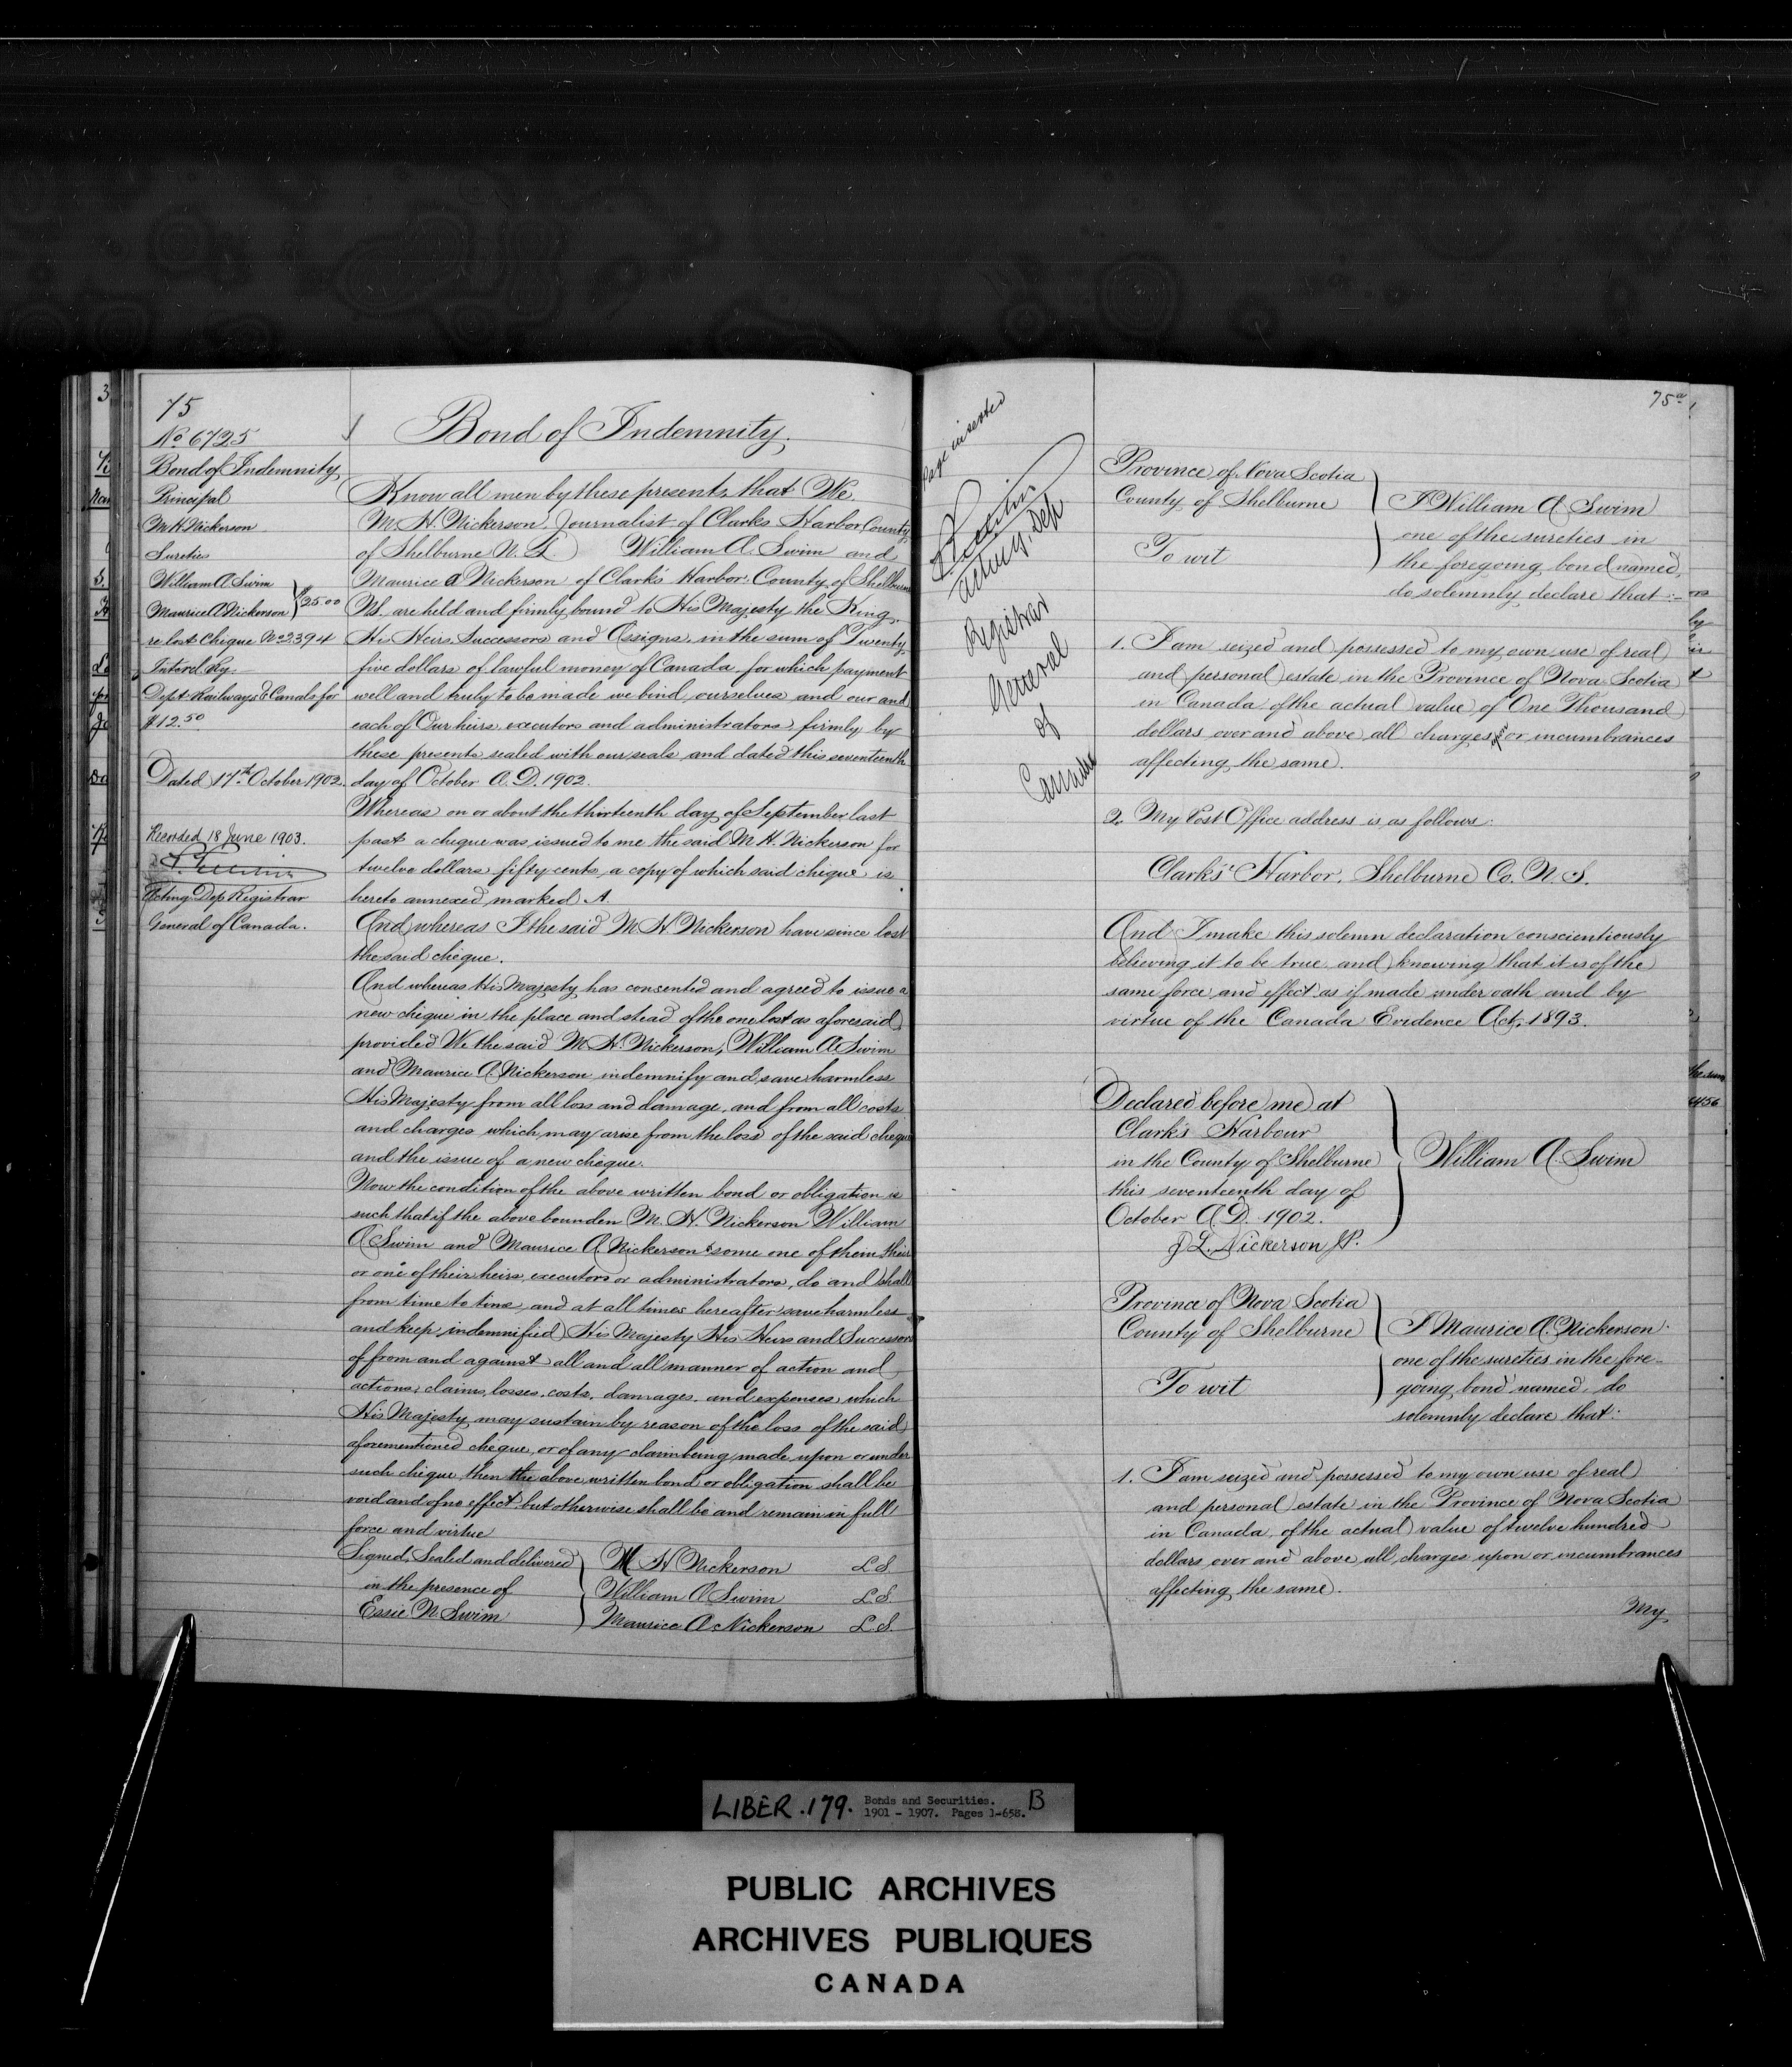 75
No 6725
Bond of Indemnity
Principal
M H Nickerson
Sureties
William A. Swim
Maurice A Nickerson } $25.00
re lost Cheque No 2394
Interc'l Ry.
Dept Railways & Canals for
$12.50
Dated 17th October 1902.
Recorded 18 June 1903.
Acting Dep Registrar
General of Canada.
Bond of Indemnity.
Know all men by these presents, that We
M. H. Nickerson, Journalist of Clarks Harbor, County
of Shelburne N. S. William A. Swim and
Maurice A Nickerson of Clark's Harbor, County of Shelburne
N.S. are held and firmly bound to His Majesty the King,
His Heirs, Successors and Assigns, in the sum of Twenty
five dollars of lawful money of Canada, for which payment
well and truly to be made we bind ourselves and our and
each of Our heirs, executors and administrators firmly by
these presents sealed with our seals and dated this seventeenth
day of October A. D. 1902.
Whereas on or about the thirteenth day of September last
past a cheque was issued to me the said M. H. Nickerson for
twelve dollars fifty cents, a copy of which said cheque is
hereto annexed marked A.
And whereas I the said M. H Nickerson have since lost
the said cheque.
And whereas His Majesty has consented and agreed to issue a
new cheque in the place and stead of the one lost as aforesaid
provided We the said M. H. Nickerson, William A. Swim
and Maurice A. Nickerson indemnify and save harmless
His Majesty from all loss and damage, and from all costs
and charges which may arise from the loss of the said cheque
and the issue of a new cheque.
Now the condition of the above written bond or obligation is
such that if the above bounden M. H. Nickerson William
A Swim and Maurice A Nickerson & some one of them their
or one of their heirs, executors or administrators, do and shall
from time to time, and at all times hereafter save harmless
and keep indemnified His Majesty His Heirs and Successors
of from and against all and all manner of action and
actions, claims, losses, costs, damages, and expenses, which
His Majesty may sustain by reason of the loss of the said
aforementioned cheque, or of any claim being made upon or under
such cheque, then the above written bond or obligation shall be
void and of no effect, but otherwise shall be and remain in full
force and virtue
Signed, Sealed and delivered } M H Nickerson L.S.
in the presence of William A Swim L.S.
Essie N Swim Maurice A. Nickerson L.S.
Page inserted
Acting Dep
Registrar
General
of
Canada
75a
Province of Nova Scotia
County of Shelburne } I William A Swim
one of the sureties in
To wit the foregoing bond named,
do solemnly declare that:-
1. I am seized and possessed to my own use of real
and personal estate in the Province of Nova Scotia
in Canada of the actual value of One Thousand
dollars over and above all charges or incumbrances
affecting the same.
2. My Post Office address is as follows:
Clark's Harbor, Shelburne Co. N. S.
And I make this solemn declaration conscientiously
believing it to be true, and knowing that it is of the
same force and effect as if made under oath and by
virtue of the Canada Evidence Act, 1893.
Declared before me at
Clark's Harbour
in the County of Shelburne } William A. Swim
this seventeenth day of
October A.D. 1902.
J L. Nickerson J.P.
Province of Nova Scotia
County of Shelburne } I Maurice A. Nickerson
one of the sureties in the fore-
To wit going bond named, do
solemnly declare that:
1. I am seized and possessed to my own use of real
and personal estate in the Province of Nova Scotia
in Canada, of the actual value of twelve hundred
dollars over and above all charges upon or incumbrances
affecting the same.
My
LIBER. 179. Bonds and Securities. B
1901 - 1907. Pages 1-658.
PUBLIC ARCHIVES
ARCHIVES PUBLIQUES
CANADA